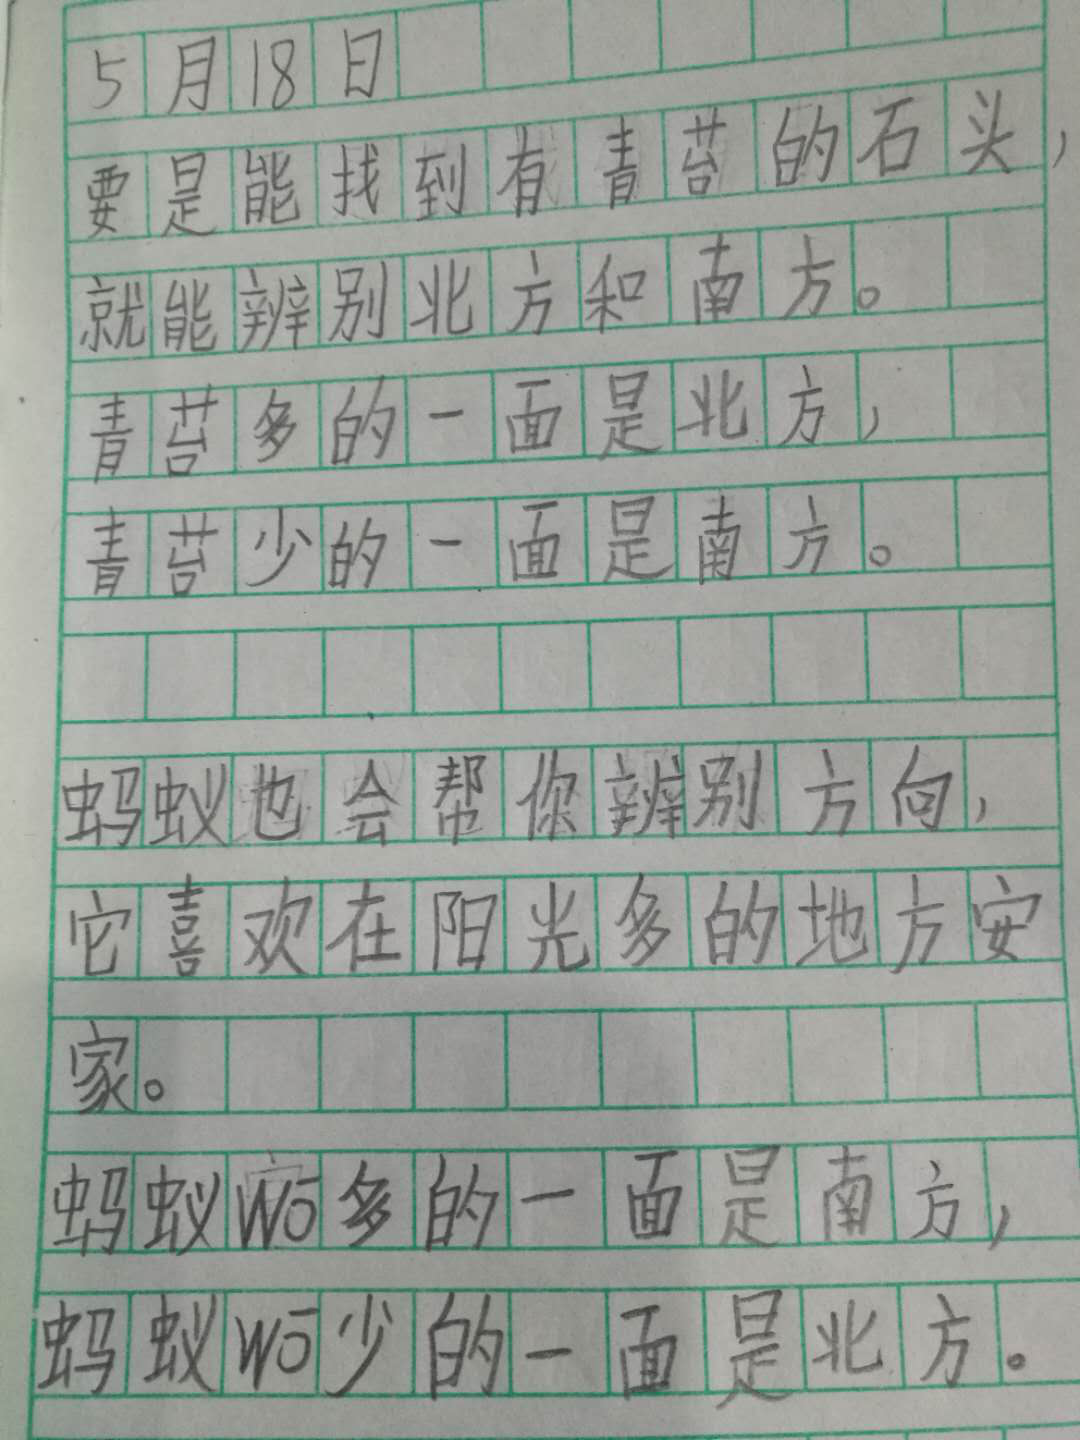 5月18日
要是能找到有青苔的石头,
就能辨别北方和南方。
青苔多的一面是北方,
青苔少的一面是南方。
蚂蚁也会帮你辨别方向,
它喜欢在阳光多的地方安
家。
蚂蚁wō多的一面是南方,
蚂蚁wō少的一面是北方。